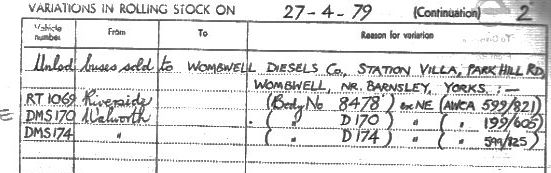 VARIATIONS IN ROLLING STOCK ON 27-4-79 (Continuation) 2
Vehicle number From To Reason for variation
Unlsd buses sold to WOMBWELL DIESELS Co., STATION VILLA, PARK HILL RD,
WOMBWELL, NR. BARNSLEY, YORKS, :—
RT 1069 Riverside (Body No 8478) ex NE (AWCA 599/821)
DMS 170 Walworth ( " D 170) " ( " 199/605)
DMS 174 " ( " D 174) " ( " 599/825)